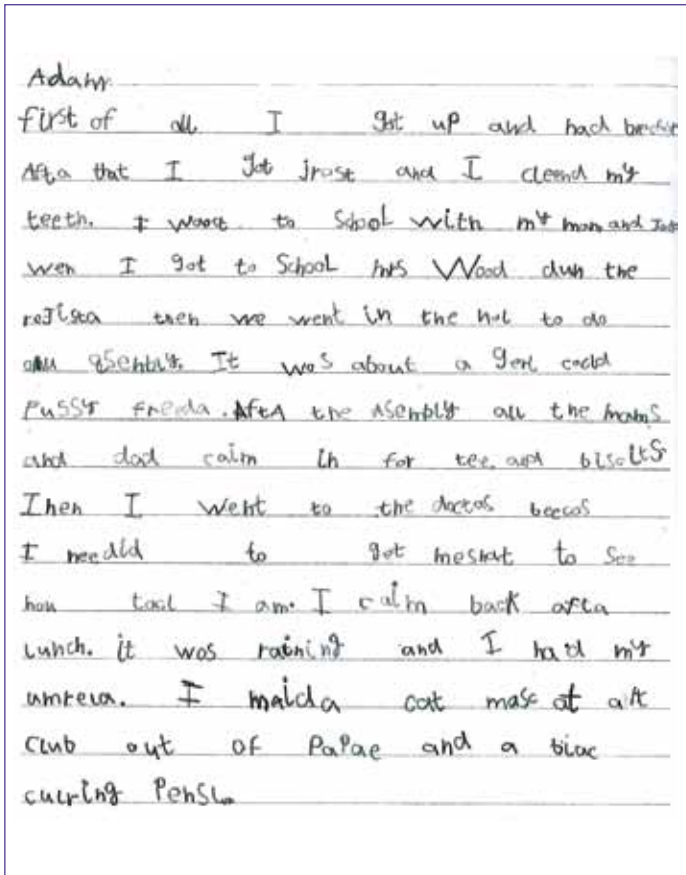 Adam
first of all I got up and had
Afta that I got jrast and I cleend my
teeth. I to School with my mam and
wen I got to School Mrs Wood dun the
rejista then we went in the hol to do
asembly. It was about a gerl cold
Pussy freeda. Afta the Asembly all the mams
and dad caim in for tee and biscits
Then I went to the doctos beecos
I needid to get mesrat to See
hou tool I am. I caim back afta
Lunch. it wos raining and I had my
umrela. I maid a cat masc at art
Club out of PaPae and a blac
culring Pensl.